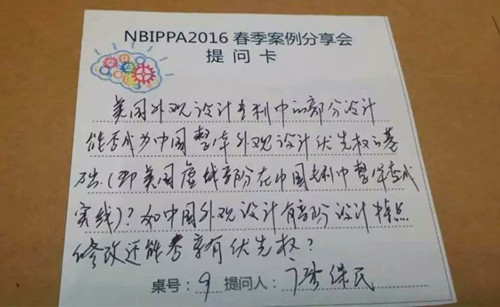 NBIPPA2016 春季案例分享会
提 问 卡
美国外观设计专利中的部分设计
能否成为中国整体外观设计优先权的基
础(即美国虚线部分在中国专利中整体变成
实线)?如中国外观设计有部分设计特点
修改还能否享有优先权?
桌号: 9 提问人: